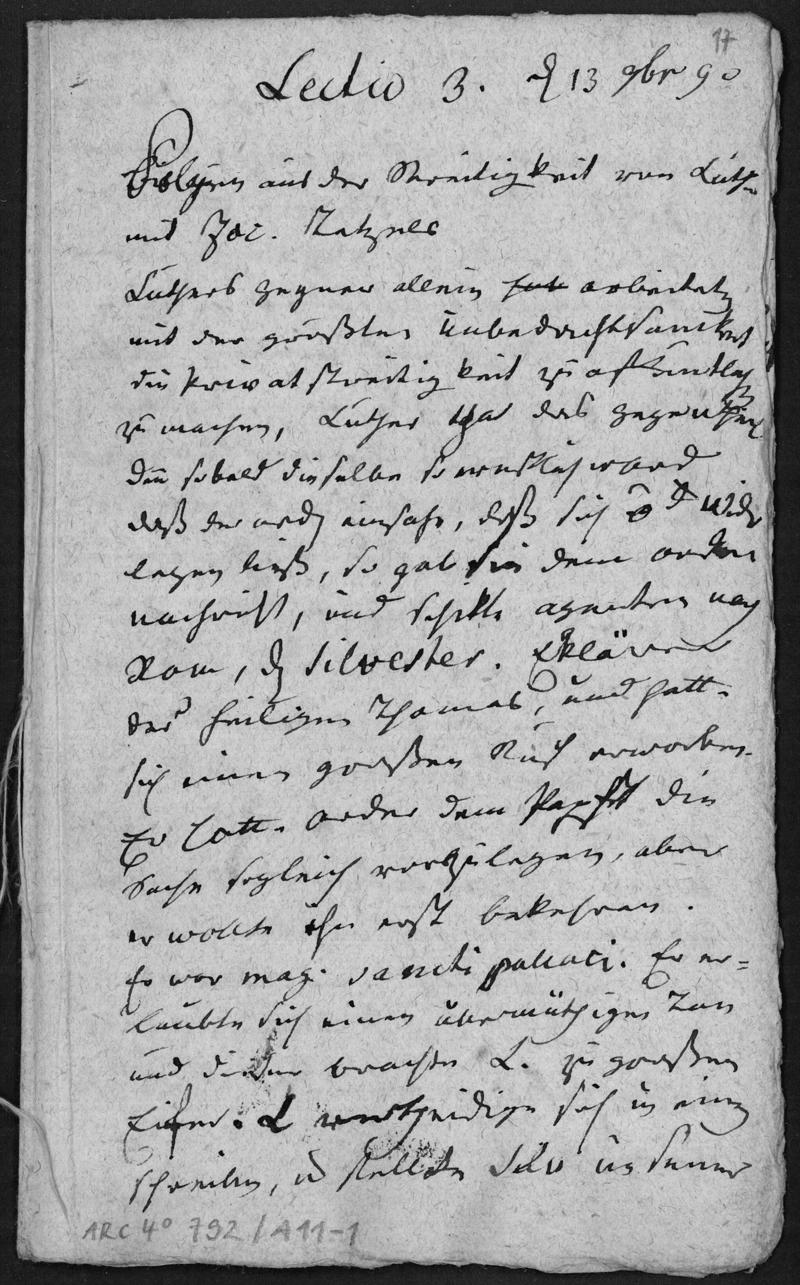 17
Lectio 3. d 13 9br 90
Folgen aus der Streitigkeit von Luth.
mit Joc. Tetzel
Luthers gegner allein hat arbeitete
mit der größten Unbedachtsamkeit
die Privatstreitigkeit zu öffentlich
zu machen, Luther that das gegentheil
den sobald dieselbe so ernstlich ward
daß der orden einsahe, daß sich wider
legen ließ, so gab sie dem orden
nachricht, und schikte agenten nach
Rom, d Silvester. Erklärer
des heiligen Thomas, und hatte
sich einen großen Ruf erworben.
Er hatte order dem Papst die
Sache sogleich vorzulegen, aber
er wollte ihn erst bekehren.
Er war mag. sancti palatii. Er er=
laubte sich einen übermüthigen Ton
und dieser brachte L. zu großen
Eifer. L vertheidigte sich in einem
schreiben, u stellte Silv in seiner
ARC 4° 792 / A11-1